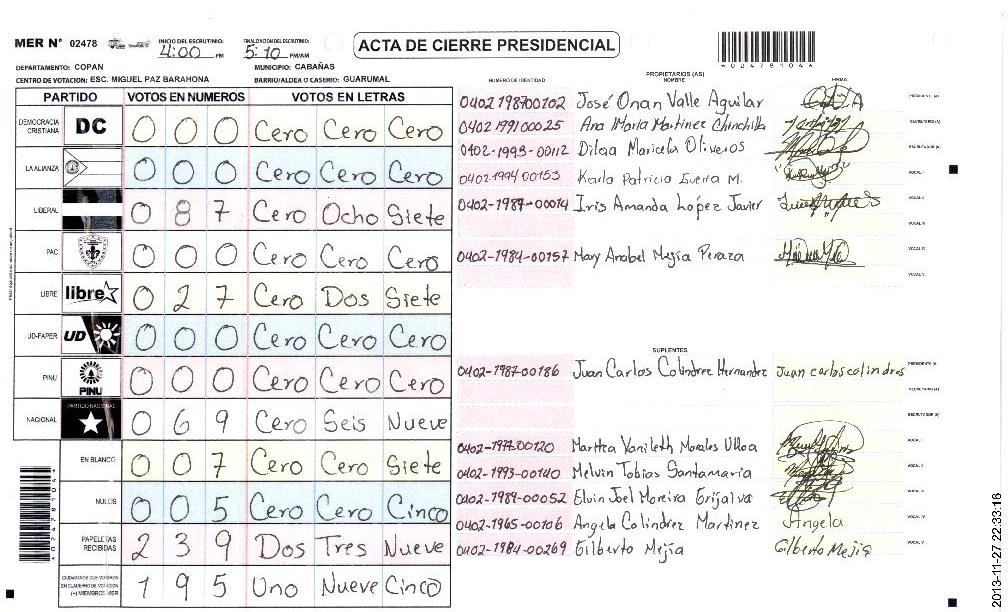 MER N° 02478
INICIO DEL ESCRUTINIO: 4:00 PM
FINALIZACION DEL ESCRUTINIO: 5:10 PM/AM
ACTA DE CIERRE PRESIDENCIAL
*02478104*
DEPARTAMENTO: COPAN
MUNICIPIO: CABAÑAS
CENTRO DE VOTACION: ESC. MIGUEL PAZ BARAHONA
BARRIO/ALDEA O CASERIO: GUARUMAL
PARTIDO VOTOS EN NUMEROS VOTOS EN LETRAS
DEMOCRACIA CRISTIANA DC 0 0 0 Cero Cero Cero
LA ALIANZA 0 0 0 Cero Cero Cero
LIBERAL 0 8 7 Cero Ocho Siete
PAC 0 0 0 Cero Cero Cero
LIBRE libre 0 2 7 Cero Dos Siete
UD-FAPER UD 0 0 0 Cero Cero Cero
PINU PINU 0 0 0 Cero Cero Cero
NACIONAL PARTIDO NACIONAL 0 6 9 Cero Seis Nueve
EN BLANCO 0 0 7 Cero Cero Siete
NULOS 0 0 5 Cero Cero Cinco
PAPELETAS RECIBIDAS 2 3 9 Dos Tres Nueve
CIUDADANOS QUE VOTARON EN CUADERNO DE VOTACION (+) MIEMBROS MER 1 9 5 Uno Nueve Cinco
*02478104*
NUMERO DE IDENTIDAD PROPIETARIOS (AS) NOMBRE FIRMA
0402 198700102 José Onan Valle Aguilar PRESIDENTE (A)
0402 1991 00025 Ana Maria Martinez Chinchilla SECRETARIO (A)
0402-1993-00112 Dilcia Maricela Oliveros ESCRUTADOR (A)
0402 1994 00153 Karla Patricia M. VOCAL I
0402-1987-00014 Iris Amanda López Javier VOCAL II
VOCAL III
0402-1984-00157 Mary Anabel Mejía Peraza VOCAL IV
VOCAL V
SUPLENTES
0402-1987-00186 Juan Carlos Colindrez Hernandez Juan carlos colindres PRESIDENTE (A)
SECRETARIO (A)
ESCRUTADOR (A)
0402-1977-00120 Martha Yanileth Morales Ulloa VOCAL I
0402-1993-00140 Melvin Tobias Santamaria VOCAL II
0402-1989-00052 Elvin Joel Moreira Grijalva VOCAL III
0402-1965-00106 Angela Colindrez Martinez Angela VOCAL IV
0402-1984-00269 Gilberto Mejía Gilberto Mejia VOCAL V
2013-11-27 22:33:16